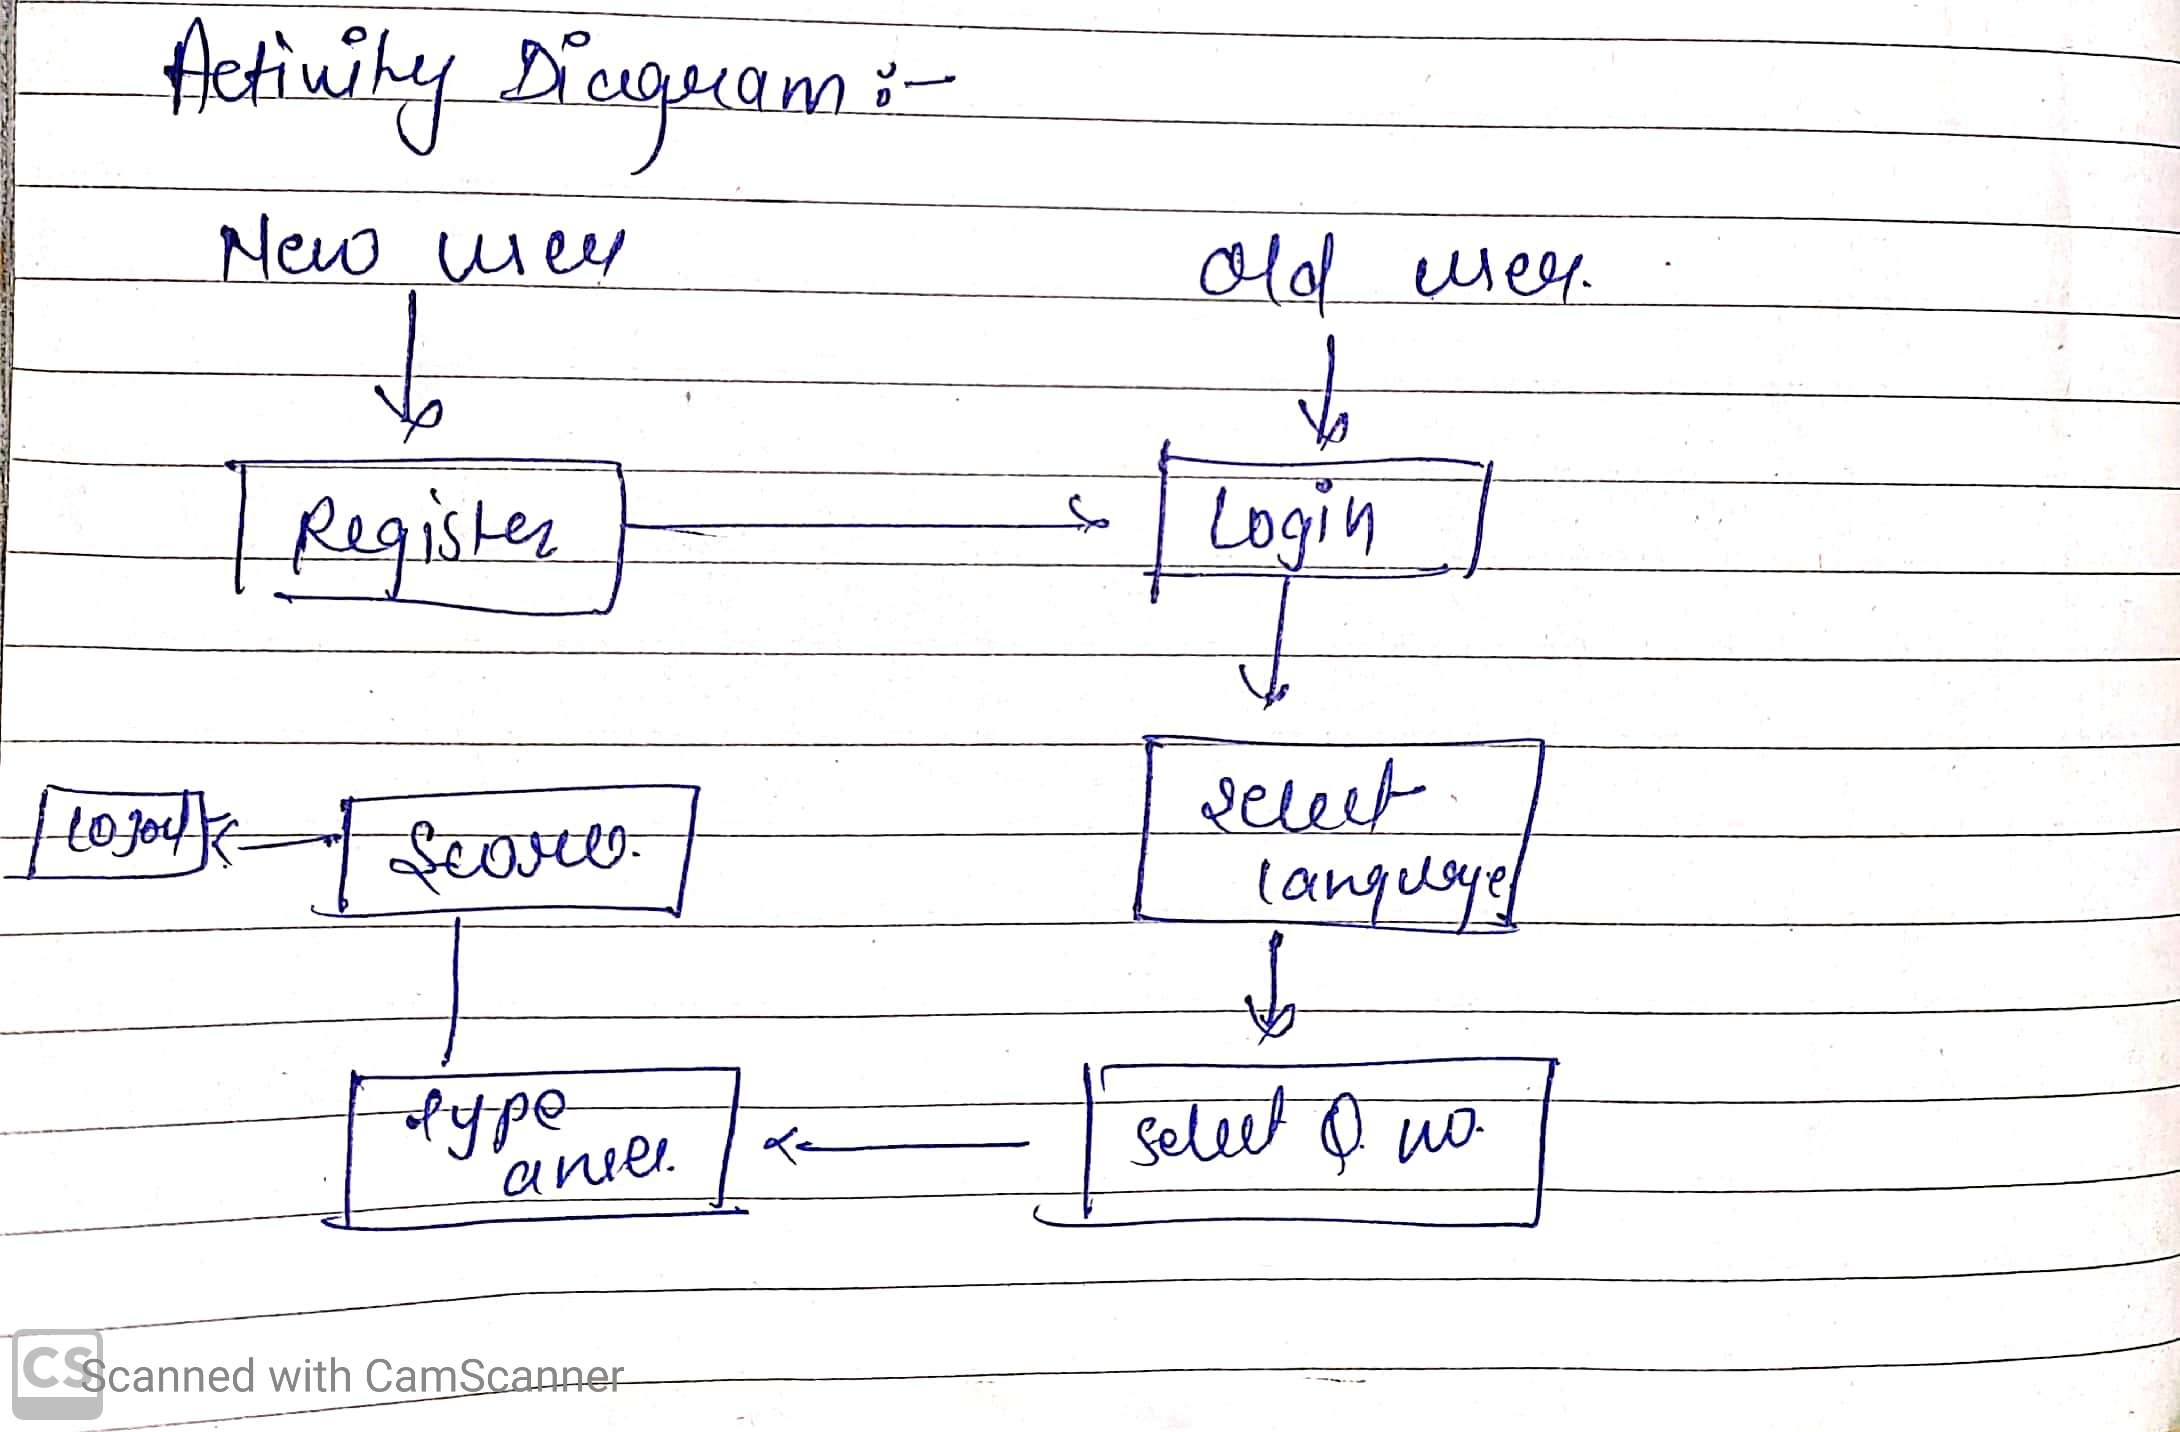 Activity Diagram :-
New user
Old user.
Register
Login
Select
language
logout
Scores.
type
select Q. no.
CS Scanned with CamScanner